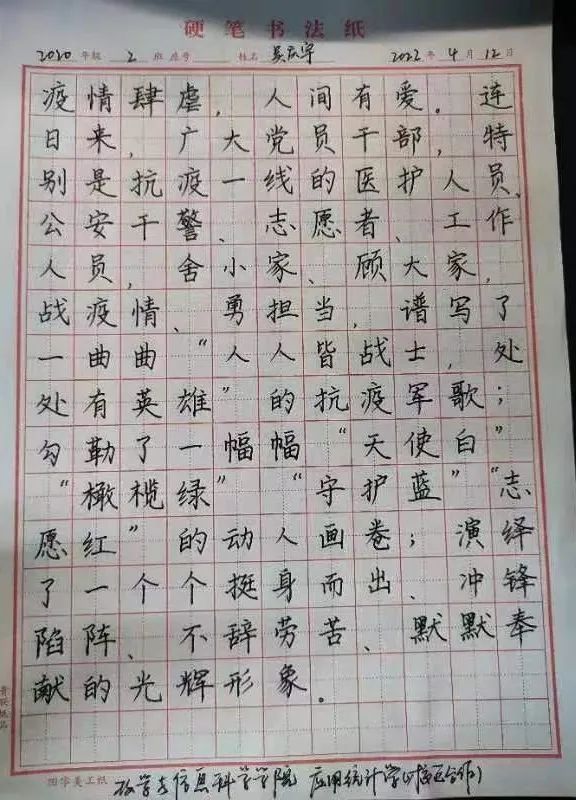 硬笔书法纸
2020年级 2 班座号 姓名 吴庆宇 2022年4月12日
疫情肆虐,人间有爱。连
日来,广大党员干部,特
别是抗疫一线的医护人员、
公安干警、志愿者、工作
人员,舍小家、顾大家,
战疫情、勇担当,谱写了
一曲曲“人人皆战士,处
处有英雄”的抗疫军歌;
勾勒了一幅幅“天使白”
“橄榄绿”“守护蓝”“志
愿红”的动人画卷;演绎
了一个个挺身而出、冲锋
陷阵、不辞劳苦、默默奉
献的光辉形象。
数学与信息科学学院 应用统计学(校企合作)